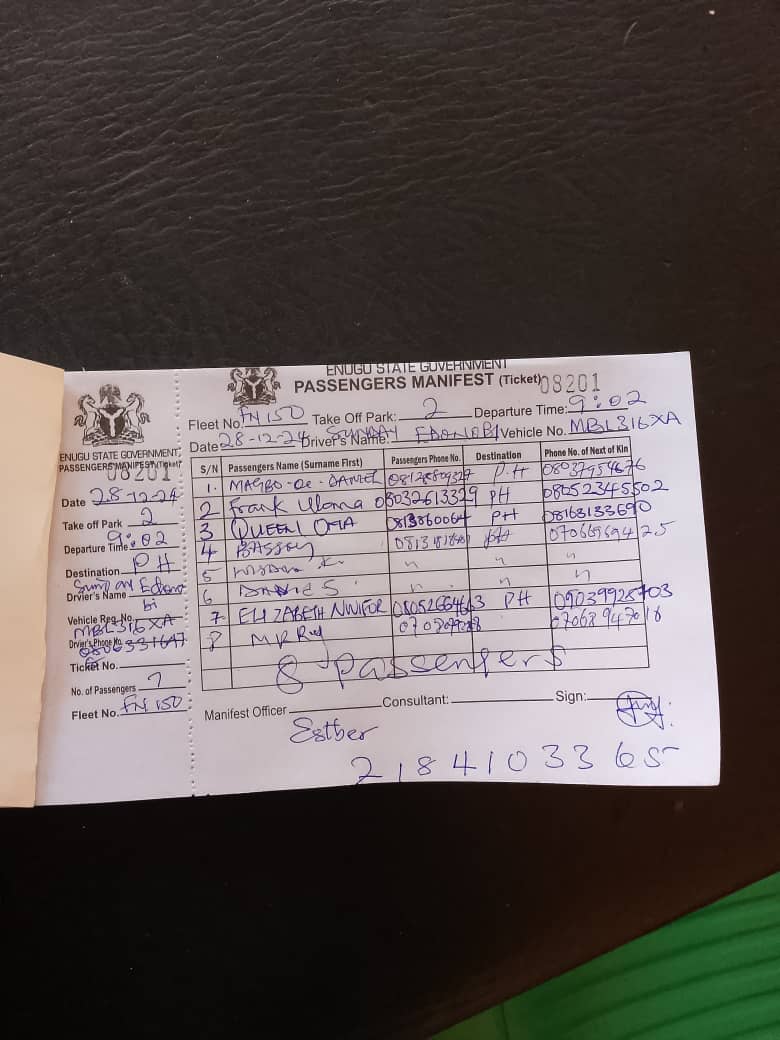 ENUGU STATE GOVERNMENT
PASSENGERS MANIFEST (Ticket)
08201
Date 28-12-24
Take off Park 2
Departure Time 9:02
Destination PH
Drvier's Name
Vehicle Reg. No. MBL316XA
Drvier's Phone No.
Ticket No.
No. of Passengers 7
Fleet No. FN 150
ENUGU STATE GOVERNMENT
PASSENGERS MANIFEST (Ticket) 08201
Fleet No. FN 150 Take Off Park: 2 Departure Time: 9:02
Date 28-12-24 Driver's Name: SUNDAY Vehicle No. MBL316XA
S/N Passengers Name (Surname First) Passengers Phone No. Destination Phone No. of Next of Kin
1. DANIEL P.H
2 Frank 08032613329 PH 08052345502
3 QUEEN PH 08163133690
4 BASSEY
5 " " "
6 " " "
7 ELIZABETH NWIFOR PH 09039928703
8 MR
8 passengers
Manifest Officer Consultant: Sign:
Esther
2184103365